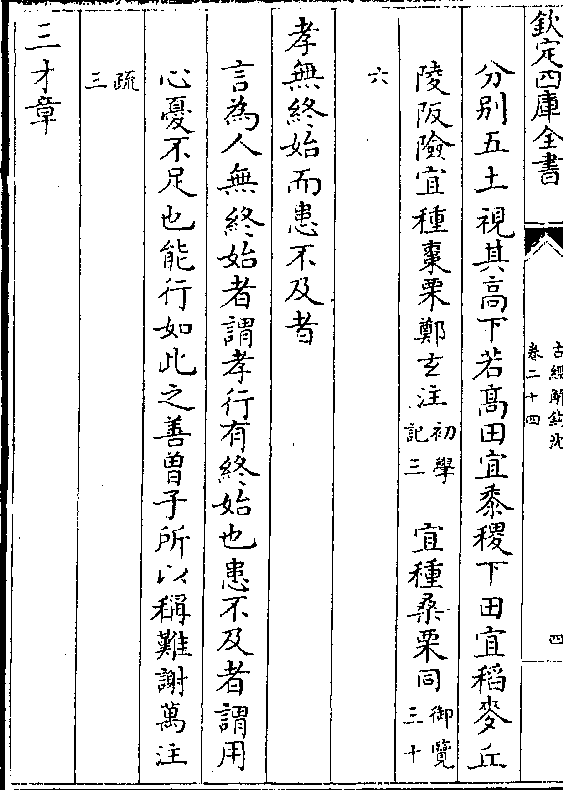 欽定四庫全書
古經解鉤沈
卷二十四
四
分别五土視其高下若髙田宜黍稷下田宜稻麥丘
陵阪險宜種棗栗鄭𤣥注初學記三 宜種桑栗同御覽三十
六
孝無終始而患不及者
言為人無終始者謂孝行有終始也患不及者謂用
心憂不足也能行如此之善曽子所以稱難謝萬注
疏三
三才章